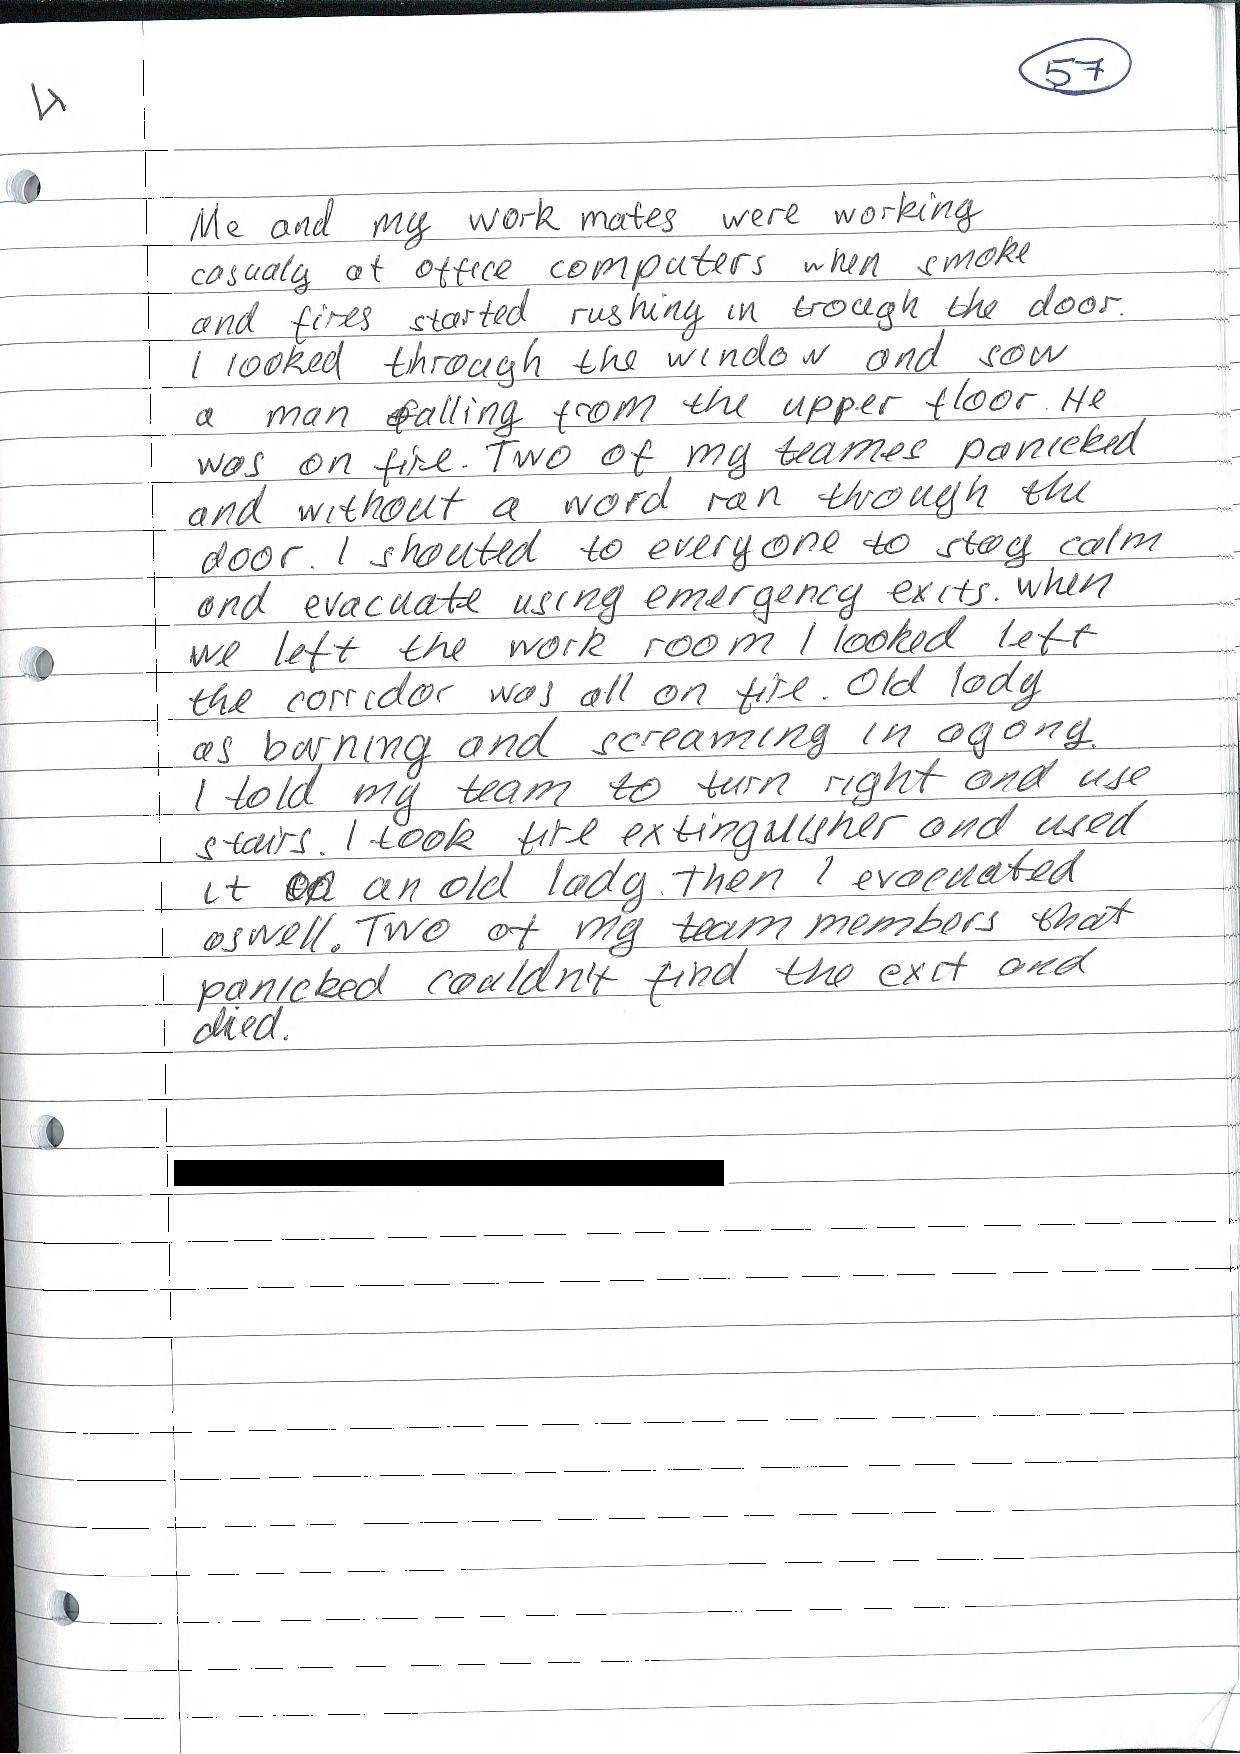 57
4
Me and my work mates were working
casualy at office computers when smoke
and fires started rushing in trough the door.
I looked through the window and saw
a man falling from the upper floor. He
was on fire. Two of my teames panicked
and without a word ran through the
door. I shouted to everyone to stay calm
and evacuate using emergency exits. When
we left the work room I looked left
the corridor was all on fire. Old lady
as burning and screaming in agony.
I told my team to turn right and use
stairs. I took fire extinguisher and used
it on an old lady. Then I evacuated
aswell. Two of my team members that
panicked couldn't find the exit and
died.